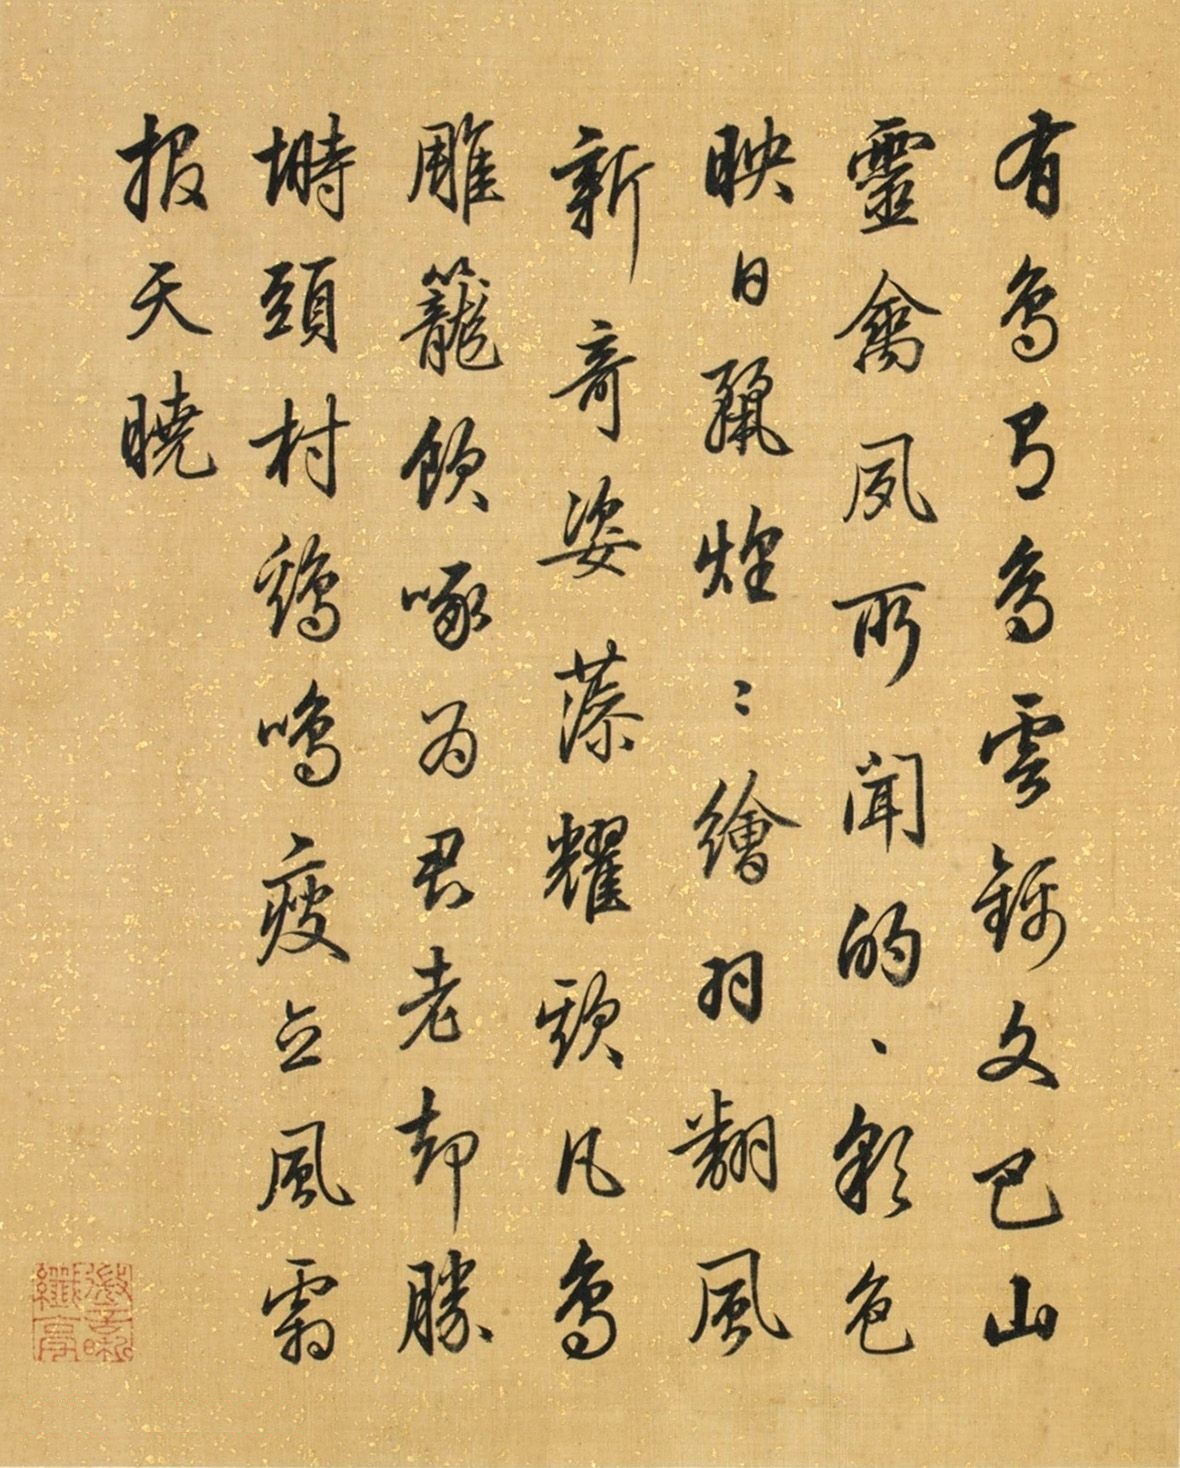 有鳥有鳥雲錦文巴山
靈禽夙所聞的〻彩色
映日麗煌〻繪羽翻風
新奇姿藻耀欺凡鳥
雕籠飲啄為君老却勝
塒頭村鷄鳴瘦立風霜
報天曉